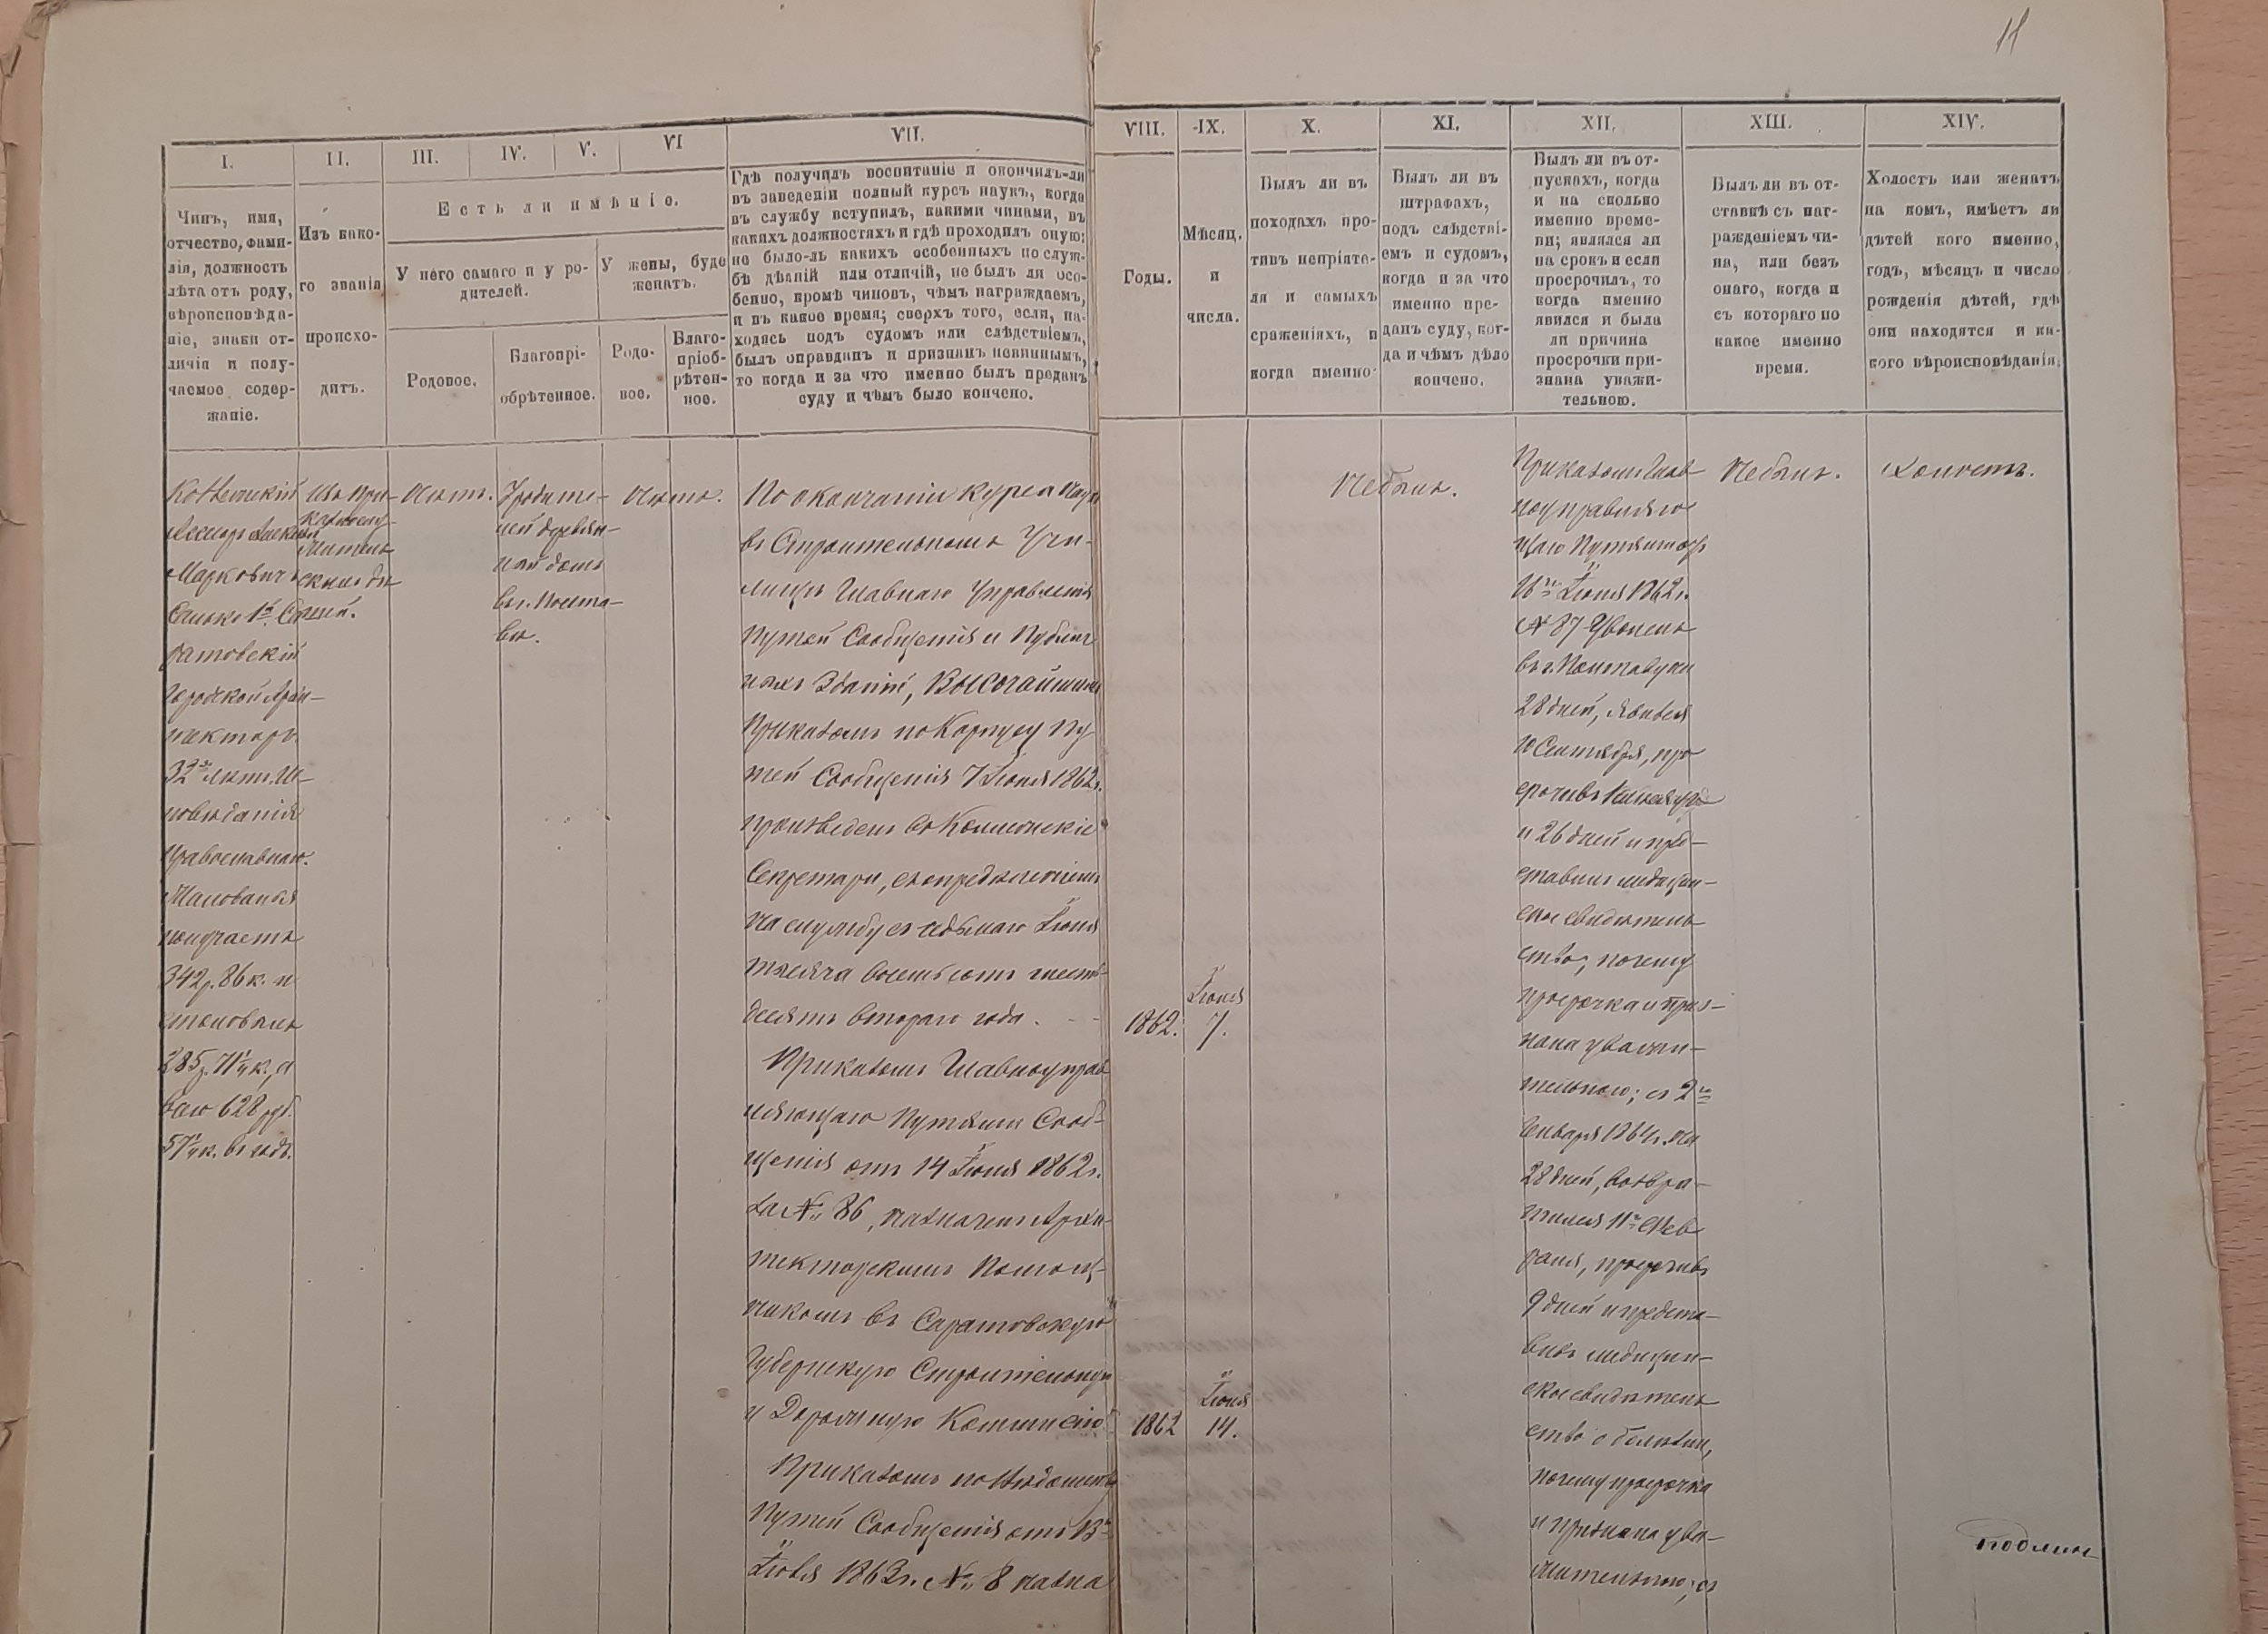 11
I.
II.
III.
IV.
V.
VI
VII.
VIII.
IX.
X.
XI.
XII.
XIII.
XIV.
Чинъ, имя,
отчество, фами-
лія, должность
лѣта отъ роду,
вѣроисповѣда-
ніе, знаки от-
личія и полу-
чаемое содер-
жаніе.
Изъ како-
го званія
происхо-
дитъ.
Есть ли имѣніе.
У него самаго и у ро-
дителей.
У жены, буде
женатъ.
Родовое.
Благопрі-
обрѣтенное.
Родо-
вое.
Благо-
пріоб-
рѣтен-
ное.
Гдѣ получилъ воспитаніе и окончилъ-ли
въ заведеніи полный курсъ наукъ, когда
въ службу вступилъ, какими чинами, въ
какихъ должностяхъ и гдѣ проходилъ оную;
не было-ль какихъ особенныхъ по служ-
бѣ дѣяній или отличій, не былъ ли осо-
бенно, кромѣ чиновъ, чѣмъ награждаемъ,
и въ какое время; сверхъ того, если, на-
ходясь подъ судомъ или слѣдствіемъ,
былъ оправданъ и признанъ невиннымъ,
то когда и за что именно былъ преданъ
суду и чѣмъ было кончено.
Годы.
Мѣсяц.
и
числа.
Былъ ли въ
походахъ про-
тивъ непріяте-
ля и самыхъ
сраженіяхъ, и
когда именно.
Былъ ли въ
штрафахъ,
подъ слѣдстві-
емъ и судомъ,
когда и за что
именно пре-
данъ суду, ког-
да и чѣмъ дѣло
кончено.
Былъ ли въ от-
пускахъ, когда
и на сколько
именно време-
ни; явился ли
на срокъ и если
просрочилъ, то
когда именно
явился и была
ли причина
просрочки при-
знана уважи-
тельною.
Былъ ли въ от-
ставкѣ съ наг-
ражденіемъ чи-
на, или безъ
онаго, когда и
съ котораго по
какое именно
время.
Холостъ или женатъ
на комъ, имѣетъ ли
дѣтей кого именно,
годъ, мѣсяцъ и число
рожденія дѣтей, гдѣ
они находятся и ка-
кого вѣроисповѣданія.
Коллежскій
Ассесоръ Алексѣй
Марковичъ
Салько 1й Са-
ратовскій
Городской Архи-
текторъ.
32хъ лѣтъ, Ис-
повѣданія
православнаго.
Жалованья
получаетъ
342 р. 86 к. и
столовыхъ
285 р. 71 к., а
всего 628 руб.
57 к. въ годъ.
Изъ При-
казнослу-
жительс-
кихъ дѣ-
тей.
Нѣтъ.
У родите-
лей деревян-
ный домъ
въ г. Полта-
вѣ.
Нѣтъ.
По окончаніи курса наукъ
въ Строительномъ Учи-
лищѣ Главнаго Управленія
Путей Сообщенія и Публич-
ныхъ Зданій, Высочайшимъ
Приказомъ по Корпусу Пу-
тей Сообщенія 7 Іюня 1862 г.
произведенъ въ Коллежскіе
Секретари, съ опредѣленіемъ
на службу съ седьмаго Іюня
тысяча восемьсотъ шесть-
десятъ втораго года.
Приказомъ Главноуправ-
ляющаго Путями Сооб-
щенія отъ 14 Іюня 1862 г.
за № 86, назначенъ Архи-
текторскимъ Помощ-
никомъ въ Саратовскую
Губернскую Строительную
и Дорожную Коммисію
Приказомъ по Вѣдомству
Путей Сообщенія отъ 13го
1863 г. № 8 назна
1862. Іюня 7.
1862 Іюня 14.
Небылъ.
Приказомъ Глав-
ноуправляю-
щаго Путями отъ
16го Іюня 1862 г.
№ 87 уволенъ
въ г. Полтаву на
28 дней, явился
10 Сентября, про-
срочивъ
и 26 дней и пред-
ставилъ медицин-
ское свидѣтель-
ство, почему
просрочка и приз-
нана уважи-
тельною; съ 2го
Января 1864 г. на
28 дней, возвра-
тился 11го Фев-
раля, просрочивъ
9 дней и предста-
вилъ медицин-
ское свидѣтель-
ство о болѣзни,
почему просрочка
и признана ува-
жительною; съ
Небылъ.
Холостъ.
Подлин-